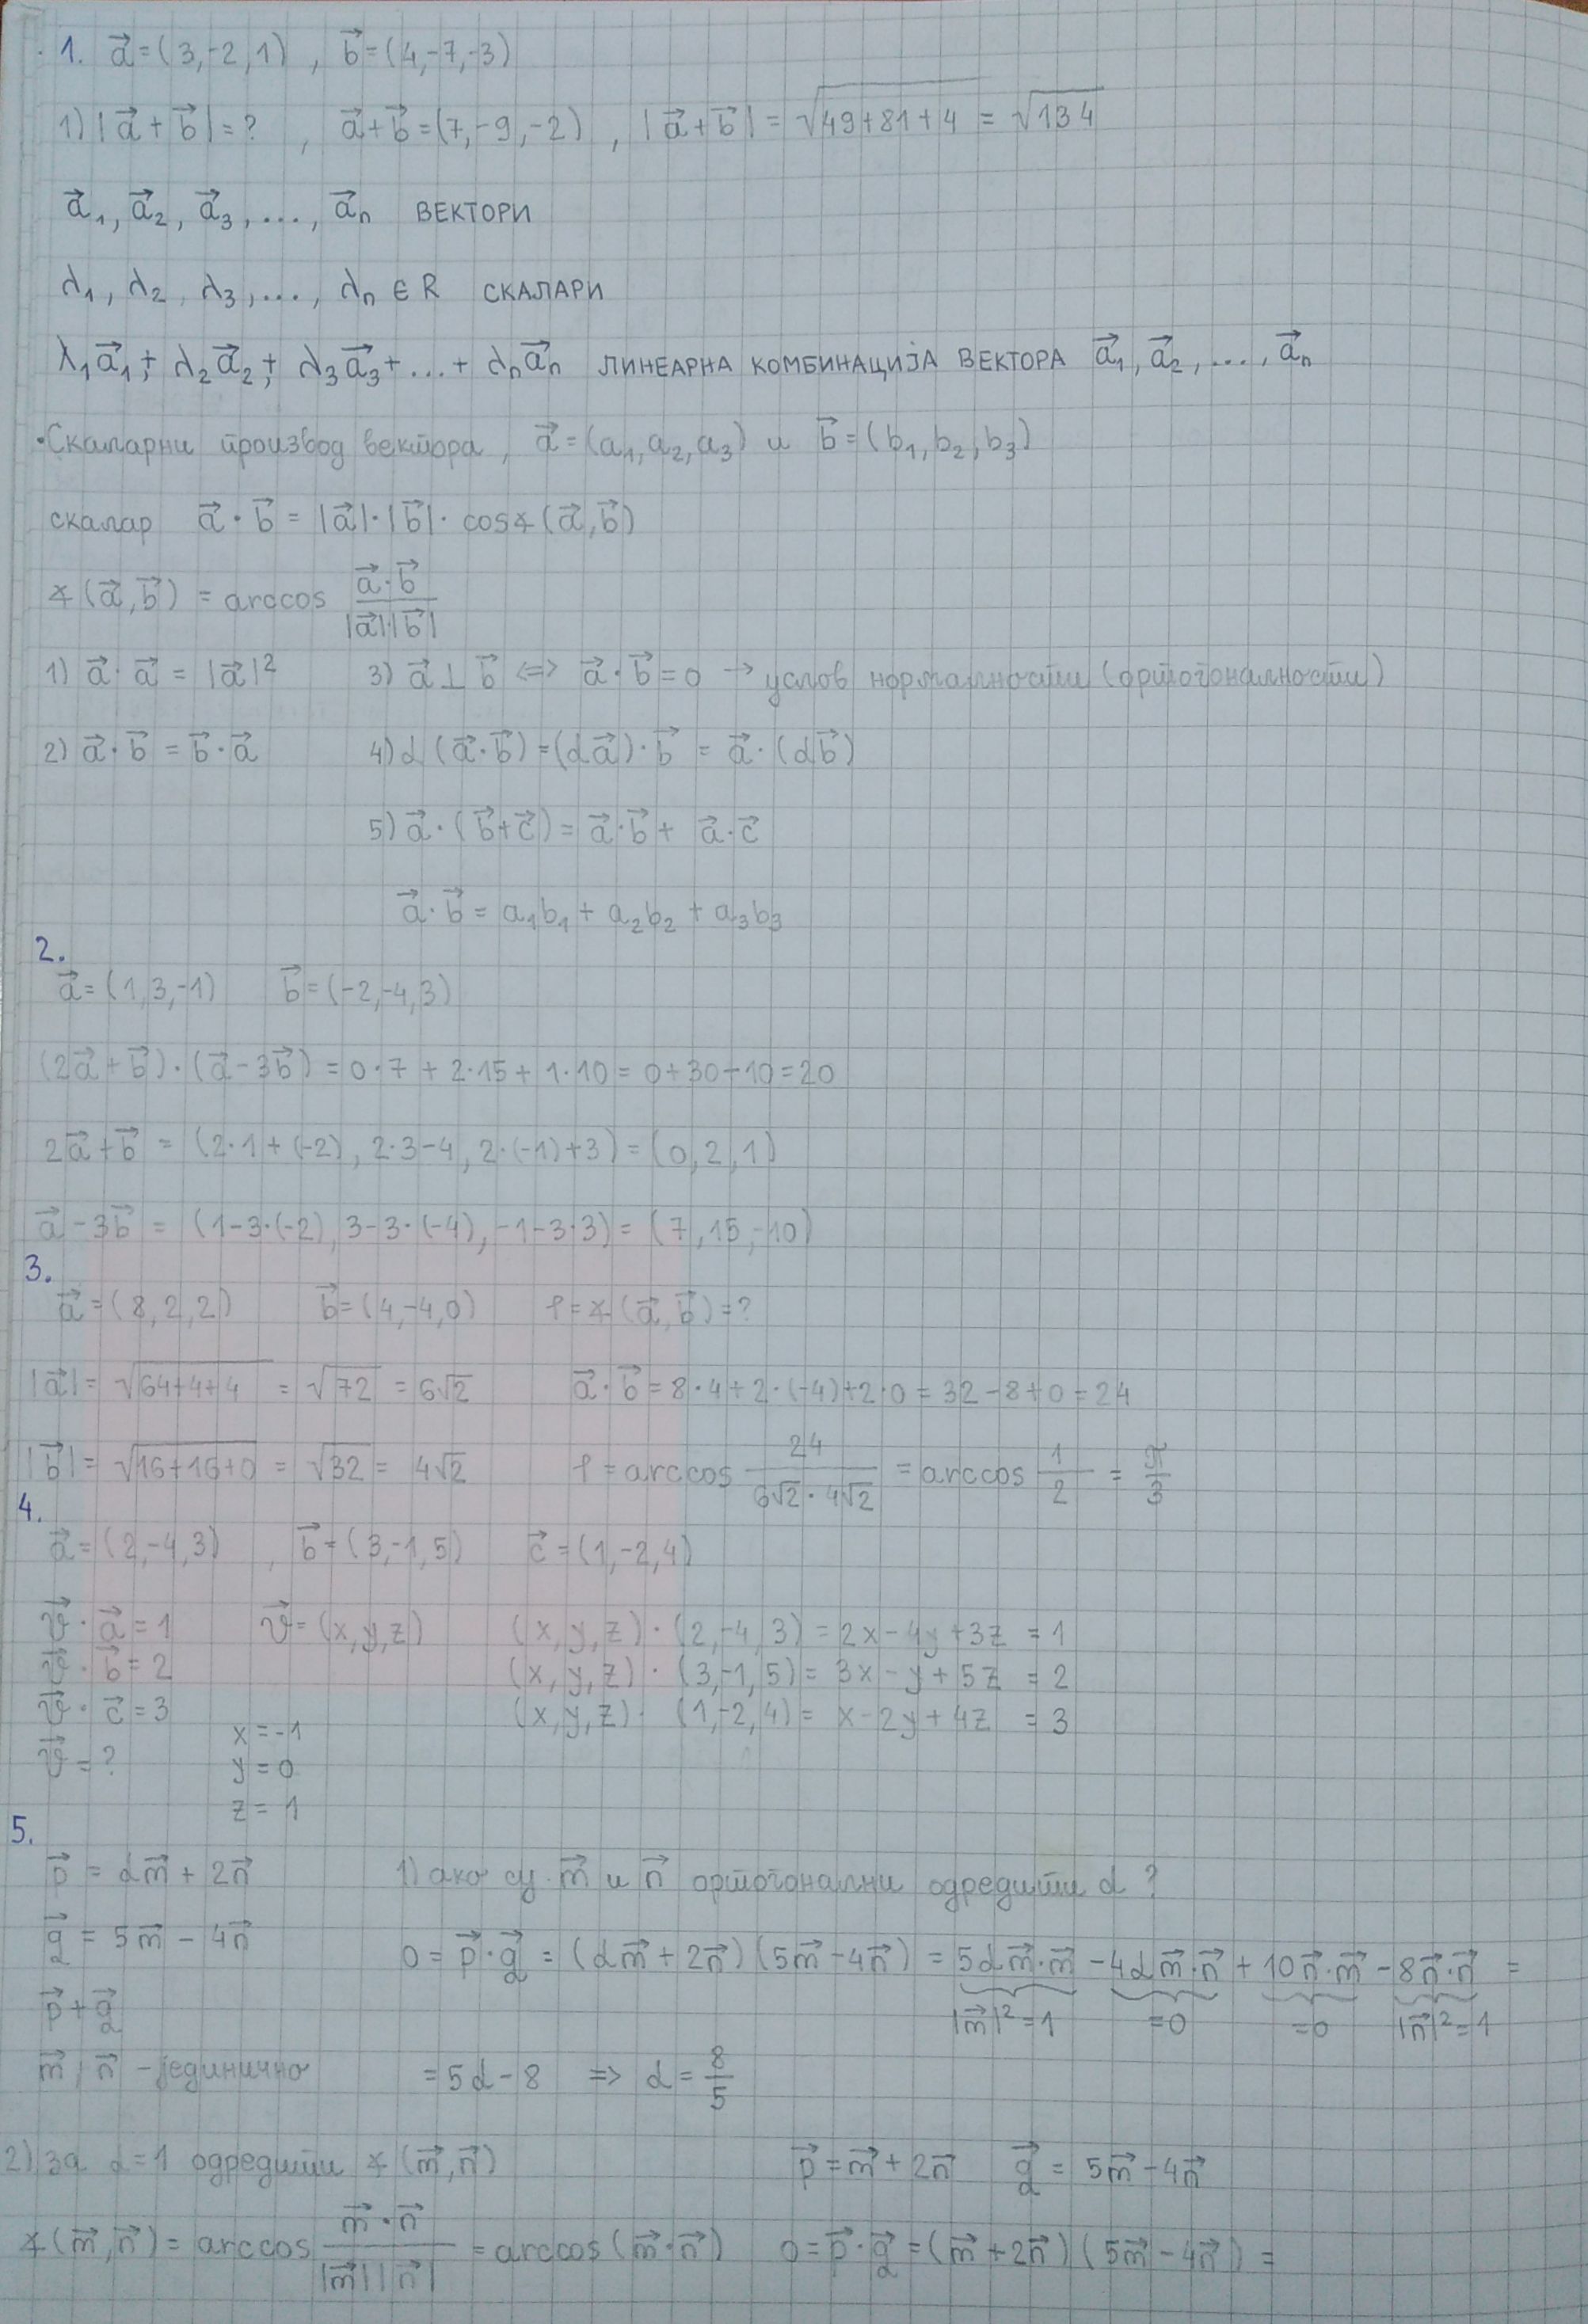 1. a⃗=(3,-2,1) , b⃗=(4,-7,-3)
1) |a⃗+b⃗|=? , a⃗+b⃗=(7,-9,-2) , |a⃗+b⃗| = √(49+81+4) = √134
a⃗₁, a⃗₂, a⃗₃, ..., a⃗ₙ ВЕКТОРИ
λ₁, λ₂, λ₃, ..., λₙ ∈ R СКАЛАРИ
λ₁a⃗₁ + λ₂a⃗₂ + λ₃a⃗₃ + ... + λₙa⃗ₙ ЛИНЕАРНА КОМБИНАЦИЈА ВЕКТОРА a⃗₁, a⃗₂, ..., a⃗ₙ
•Скаларни производ вектора, a⃗=(a₁,a₂,a₃) и b⃗=(b₁,b₂,b₃)
скалар a⃗·b⃗ = |a⃗|·|b⃗|· cos∡(a⃗,b⃗)
∡(a⃗,b⃗) = arccos (a⃗·b⃗)/(|a⃗|·|b⃗|)
1) a⃗·a⃗ = |a⃗|² 3) a⃗⊥b⃗ <=> a⃗·b⃗=0 → услов нормалности (ортогоналности)
2) a⃗·b⃗ = b⃗·a⃗ 4) α(a⃗·b⃗)=(αa⃗)·b⃗ = a⃗·(αb⃗)
5) a⃗·(b⃗+c⃗) = a⃗·b⃗ + a⃗·c⃗
a⃗·b⃗ = a₁b₁ + a₂b₂ + a₃b₃
2.
a⃗=(1,3,-1) b⃗=(-2,-4,3)
(2a⃗+b⃗)·(a⃗-3b⃗) = 0·7 + 2·15 + 1·10 = 0+30-10=20
2a⃗+b⃗ = (2·1+(-2), 2·3-4, 2·(-1)+3) = (0,2,1)
a⃗-3b⃗ = (1-3·(-2), 3-3·(-4), -1-3·3) = (7,15,-10)
3.
a⃗=(8,2,2) b⃗=(4,-4,0) φ=∡(a⃗,b⃗)=?
|a⃗| = √(64+4+4) = √72 = 6√2 a⃗·b⃗ = 8·4+2·(-4)+2·0 = 32-8+0 = 24
|b⃗| = √(16+16+0) = √32 = 4√2 φ = arccos 24/(6√2·4√2) = arccos 1/2 = π/3
4.
a⃗=(2,-4,3) , b⃗=(3,-1,5) c⃗=(1,-2,4)
v⃗·a⃗=1 v⃗=(x,y,z) (x,y,z)·(2,-4,3) = 2x-4y+3z = 1
v⃗·b⃗=2 (x,y,z)·(3,-1,5) = 3x-y+5z = 2
v⃗·c⃗=3 (x,y,z)·(1,-2,4) = x-2y+4z = 3
x=-1
v⃗=? y=0
z=1
5.
p⃗ = αm⃗ + 2n⃗ 1) ако су m⃗ и n⃗ ортогонални одредити α?
q⃗ = 5m⃗ - 4n⃗ 0 = p⃗·q⃗ = (αm⃗+2n⃗)(5m⃗-4n⃗) = 5αm⃗·m⃗ - 4αm⃗·n⃗ + 10n⃗·m⃗ - 8n⃗·n⃗ =
p⃗+q⃗ |m⃗|²=1 =0 =0 |n⃗|²=1
m⃗, n⃗ - јединично = 5α-8 => α = 8/5
2) за α=1 одредити ∡(m⃗,n⃗) p⃗ = m⃗+2n⃗ q⃗ = 5m⃗-4n⃗
∡(m⃗,n⃗) = arccos (m⃗·n⃗)/(|m⃗||n⃗|) = arccos(m⃗·n⃗) 0=p⃗·q⃗=(m⃗+2n⃗)(5m⃗-4n⃗) =